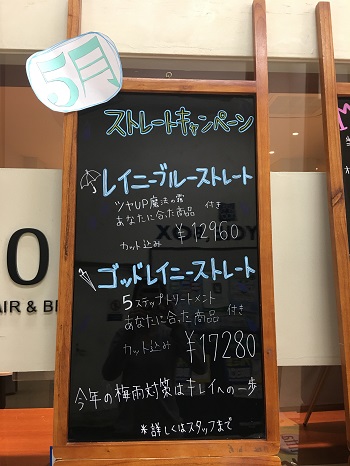 5月
ストレートキャンペーン
レイニーブルーストレート
ツヤUP魔法の霧
あなたに合った商品 付き
カット込み ¥12960
ゴッドレイニーストレート
5ステップトリートメント
あなたに合った商品 付き
カット込み ¥17280
今年の梅雨対策はキレイへの一歩
*詳しくはスタッフまで
AIR & B